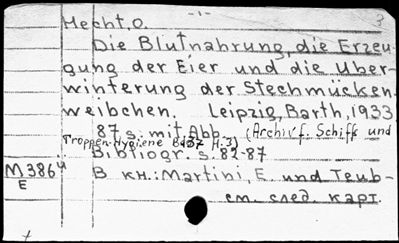 - 1 -
3
Hecht, O.
Die Blutnahrung, die Erzeu-
gung der Eier und die Über-
winterung der Stechmücken-
weibchen. Leipzig, Barth, 1933.
87 s. mit Abb. (Archiv f. Schiffs und
Tropen-Hygiene Bd 37 H. 3)
Bibliogr. s. 82-87
M 386
E
В кн.: Martini, E. und Teub-
см. след. карт.